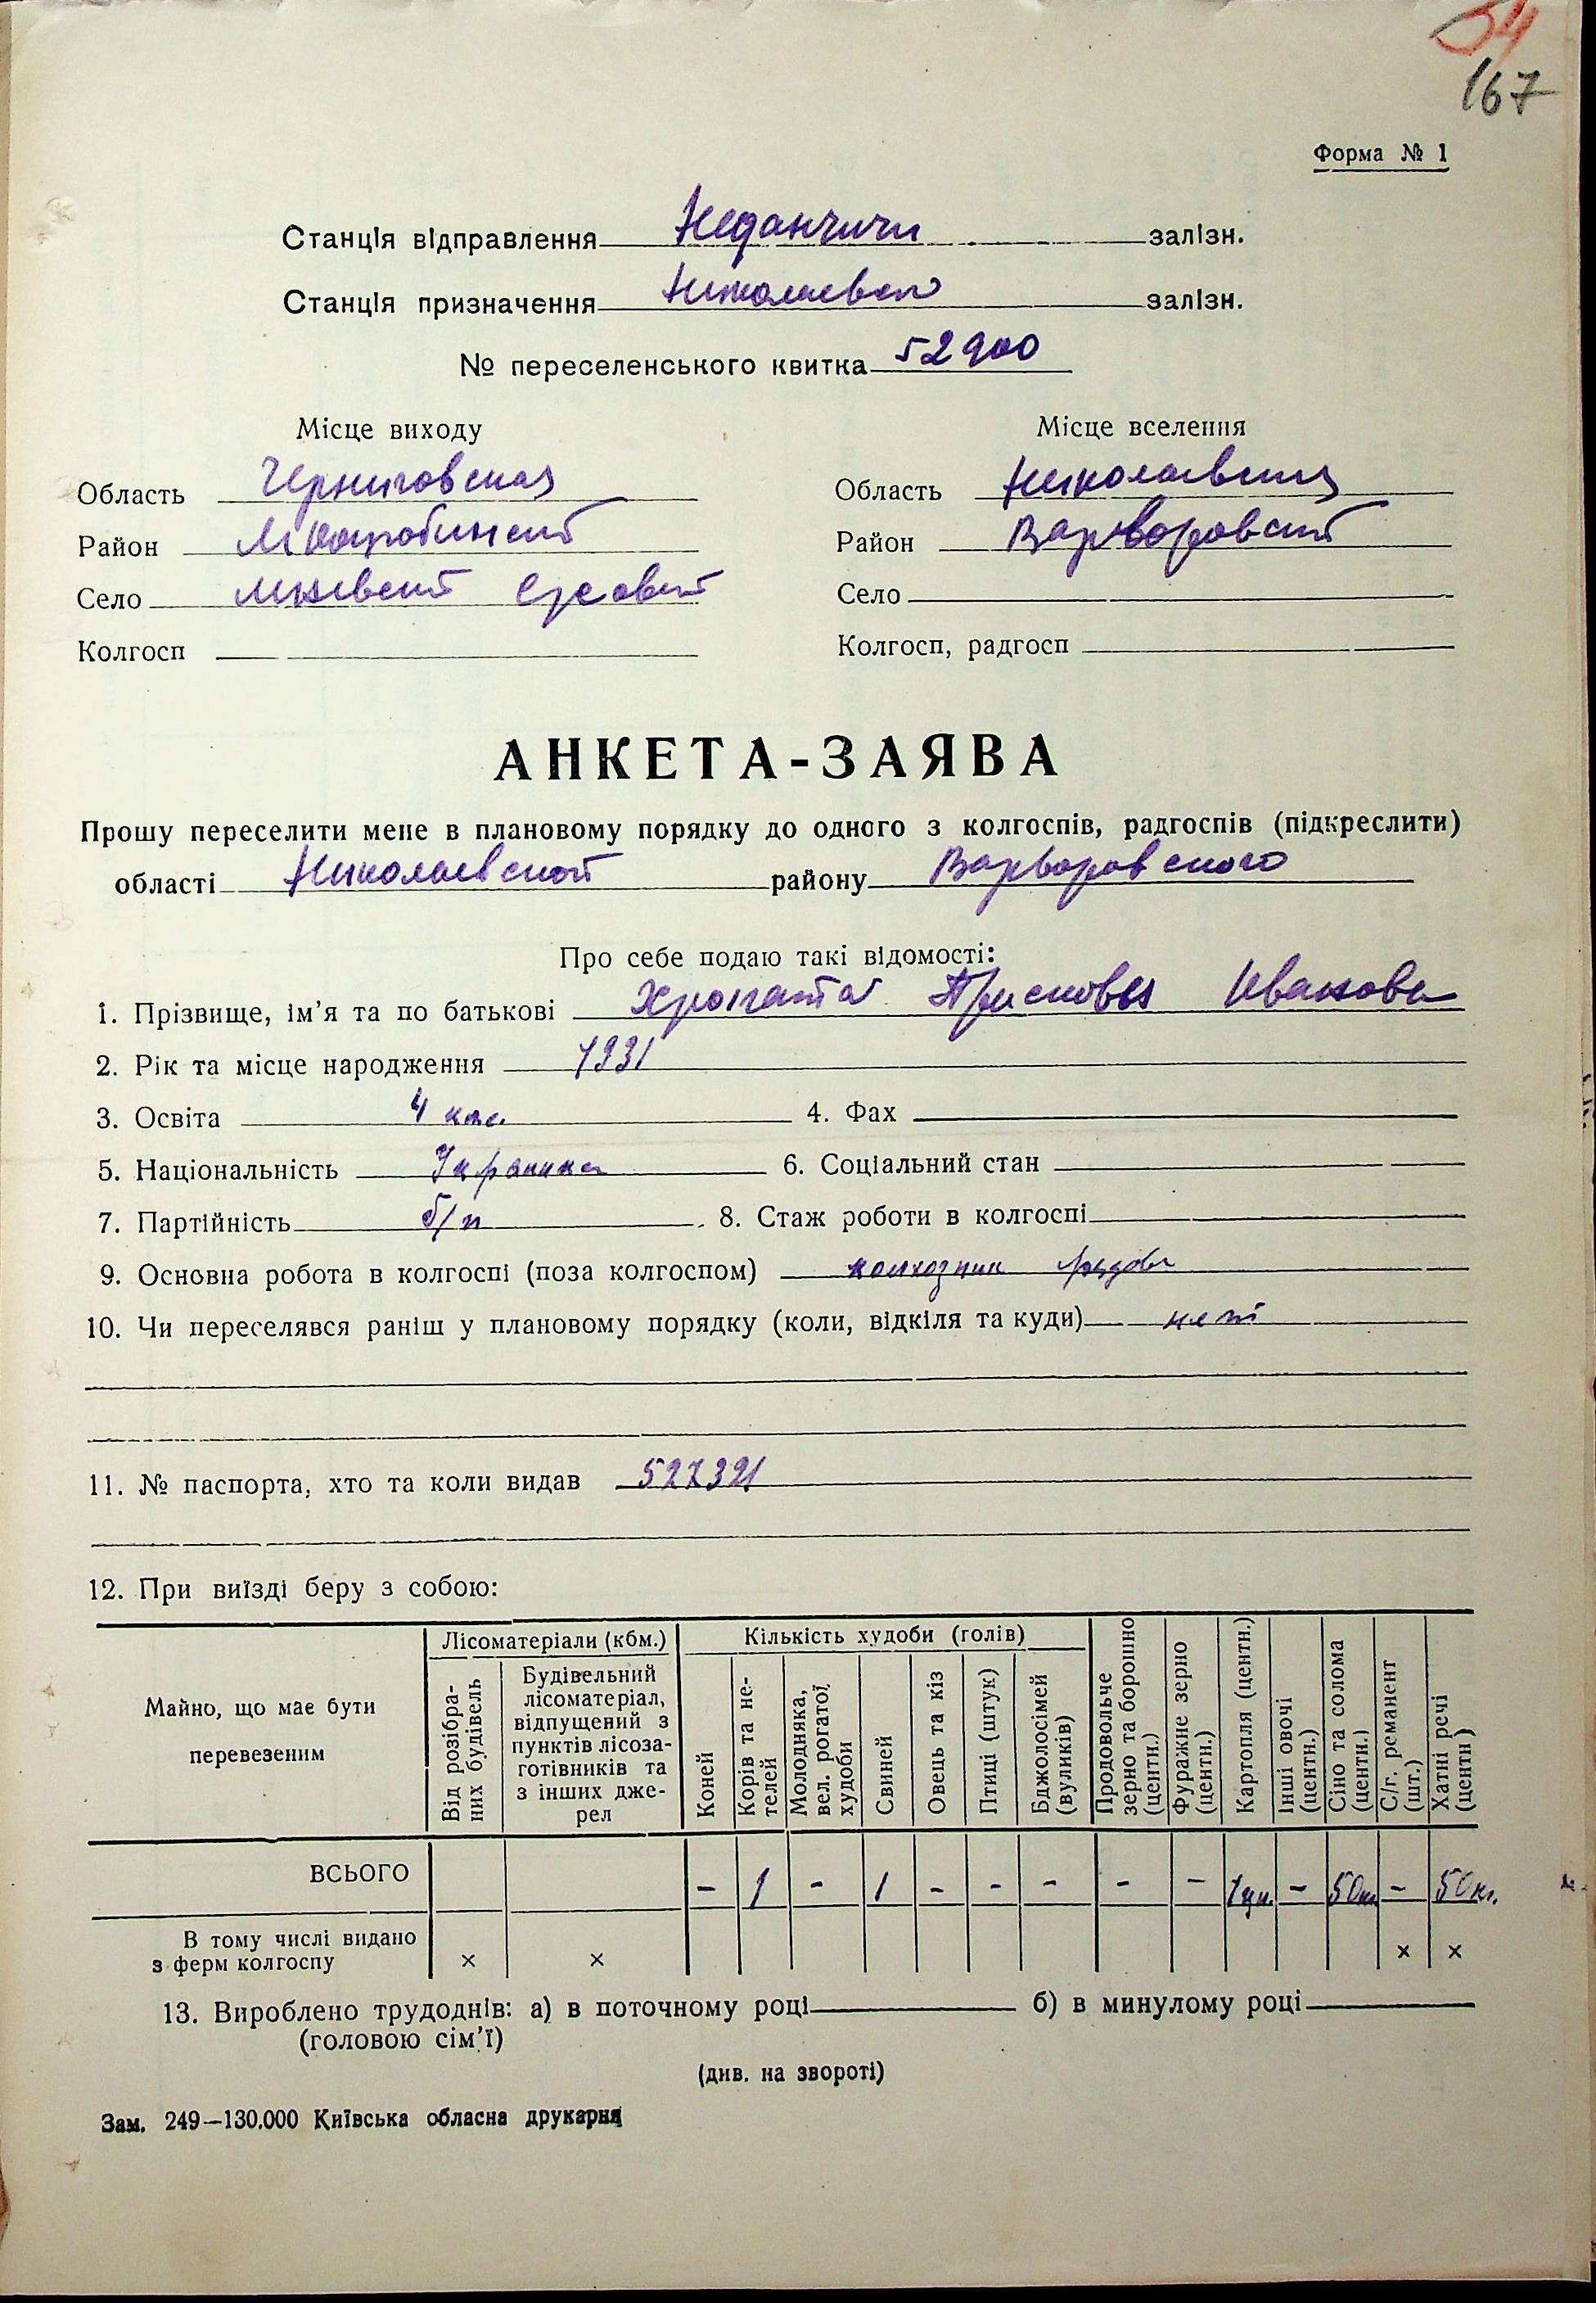 54
167
Форма № 1
Станція відправлення Неданчичи залізн.
Станція призначення Николаев залізн.
№ переселенського квитка 52900
Місце виходу
Місце вселення
Область Черниговская
Область Николаевская
Район
Район Варваровский
Село
Село
Колгосп
Колгосп, радгосп
АНКЕТА-ЗАЯВА
Прошу переселити мене в плановому порядку до одного з колгоспів, радгоспів (підкреслити)
області Николаевской району Варваровского
Про себе подаю такі відомості:
1. Прізвище, ім'я та по батькові
2. Рік та місце народження 1931
3. Освіта 4 кл. 4. Фах
5. Національність 6. Соціальний стан
7. Партійність б/п 8. Стаж роботи в колгоспі
9. Основна робота в колгоспі (поза колгоспом) колхозник
10. Чи переселявся раніш у плановому порядку (коли, відкіля та куди) нет
11. № паспорта, хто та коли видав 527321
12. При виїзді беру з собою:
Майно, що має бути перевезеним
Лісоматеріали (кбм.)
Від розібра-
них будівель
Будівельний
лісоматеріал,
відпущений з
пунктів лісоза-
готівників та
з інших дже-
рел
Кількість худоби (голів)
Коней
Корів та не-
телей
Молодняка,
вел. рогатої
худоби
Свиней
Овець та кіз
Птиці (штук)
Бджолосімей
(вуликів)
Продовольче
зерно та борошно
(центн.)
Фуражне зерно
(центн.)
Картопля (центн.)
Інші овочі
(центн.)
Сіно та солома
(центн.)
С/г. реманент
(шт.)
Хатні речі
(центн)
ВСЬОГО - 1 - 1 - - - - - 1 цн. - 50 - 50 кг.
В тому числі видано
з ферм колгоспу × × × ×
13. Вироблено трудоднів: а) в поточному році б) в минулому році
(головою сім'ї)
(див. на звороті)
Зам. 249—130.000 Київська обласна друкарня